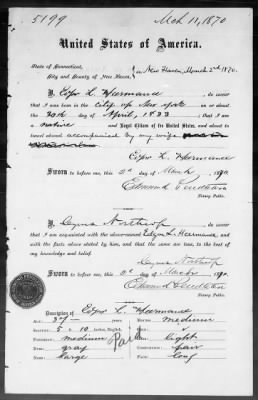 5199 Mch 11, 1870
United States of America.
State of Connecticut,
City and County of New Haven, New Haven, March 2nd 1870.
I, Edgar L. Heermance, do swear
that I was born in the city of New York on or about
the 30th day of April, 1833
native and Loyal Citizen of the United States, and about to
travel abroad accompanied by my wife
Edgar L. Heermance
Sworn to before me, this 2d day of March, 1870.
Notary Public.
I, Cyrus Northrop, do swear
that I am acquainted with the above-named Edgar L. Heermance, and
with the facts above stated by him, and that the same are true, to the best of
my knowledge and belief.
Cyrus Northrop
Sworn to before me, this 2d day of March, 1870.
Notary Public.
Description of Edgar L. Heermance
Age: Mouth: medium
Stature: 5 " 10 inches, English. Chin:
Forehead: medium Hair: light
Eyes: gray Complexion: fair
Nose: large Face: long